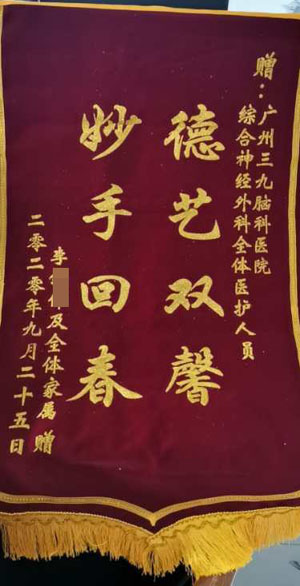 赠：广州三九脑科医院
综合神经外科全体医护人员
德艺双馨
妙手回春
李 及全体家属 赠
二零二零年九月二十五日